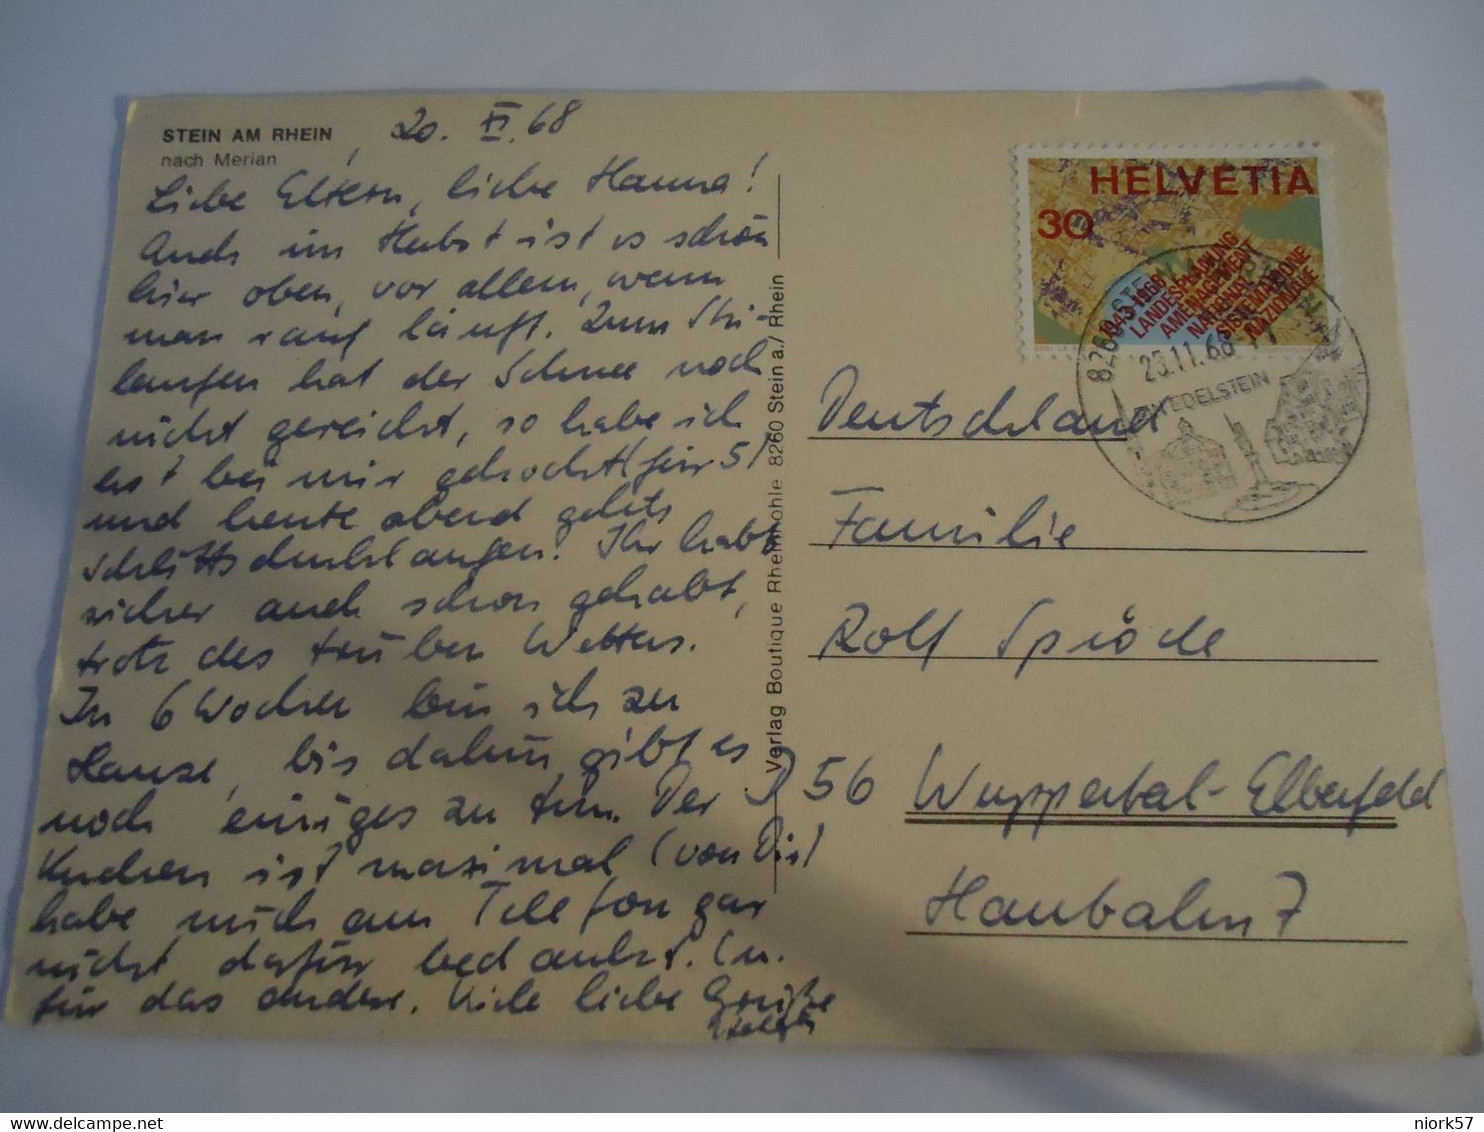 STEIN AM RHEIN
nach Merian
20. XI. 68
Liebe Eltern, liebe Hanna!
Auch im Herbst ist es schön
hier oben, vor allem, wenn
man rauf läuft. Zum Ski-
laufen hat der Schnee noch
nicht gereicht, so habe ich
erst bei mir gekocht (für 5)
und heute abend gehts
Schlittschuhlaufen. Ihr habt
sicher auch schon gehabt,
trotz des trüben Wetters.
In 6 Wochen bin ich zu
Hause, bis dahin gibt es
noch einiges zu tun. Der
Kuchen ist maximal (von Dir)
habe mich am Telefon gar
nicht dafür bedankt. (u.
für das andere. Viele liebe Grüße
Verlag Boutique Rheinmöhle 8260 Stein a./ Rhein
HELVETIA
30
1943-1968
LANDESPLANUNG
AMENAGEMENT
NATIONAL
SISTEMAZIONE
NAZIONALE
8260 STEIN AM RHEIN
25.11.68
EDELSTEIN
Deutschland
Familie
Rolf Spröde
D 56 Wuppertal-Elberfeld
Hanbahn 7
niork57